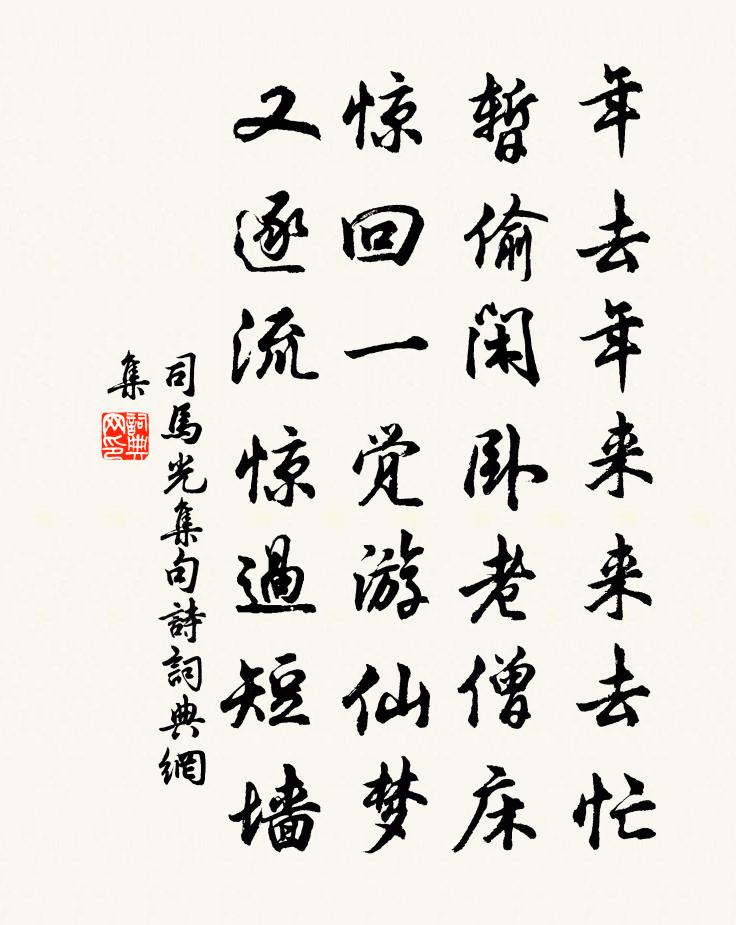 年去年来来去忙
暫偷閑卧老僧床
惊回一觉游仙梦
又逐流惊過短墙
司馬光集句詩詞典網
集
詞典
网印